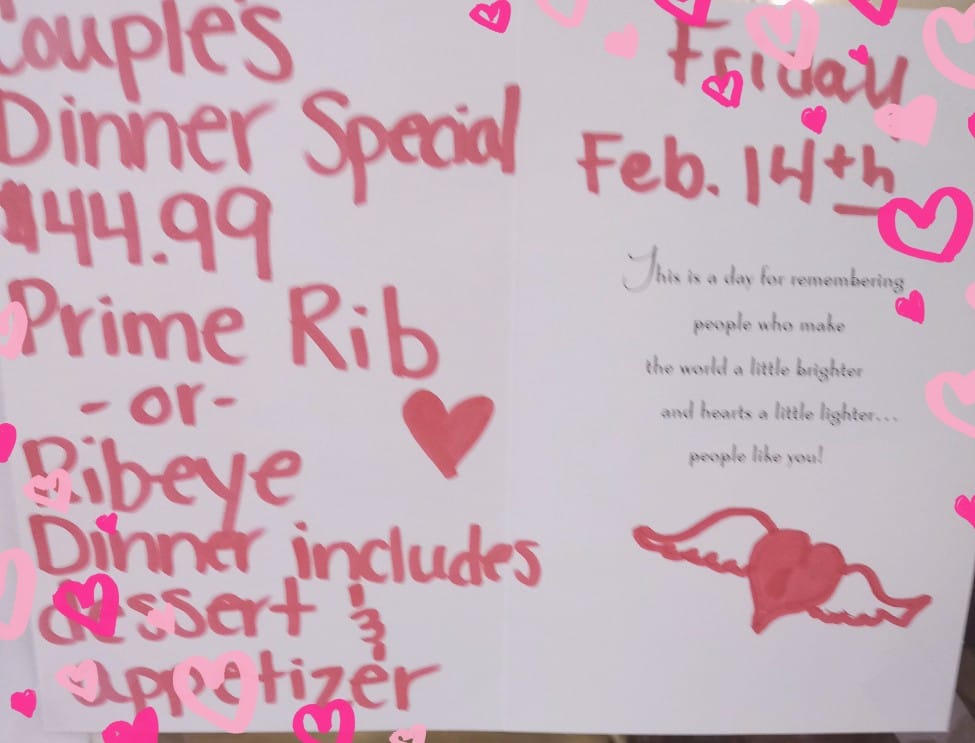 Couple's
Dinner Special
$44.99
Prime Rib
- or -
Ribeye
Dinner includes
dessert &
appetizer
Friday
Feb. 14th
This is a day for remembering
people who make
the world a little brighter
and hearts a little lighter...
people like you!